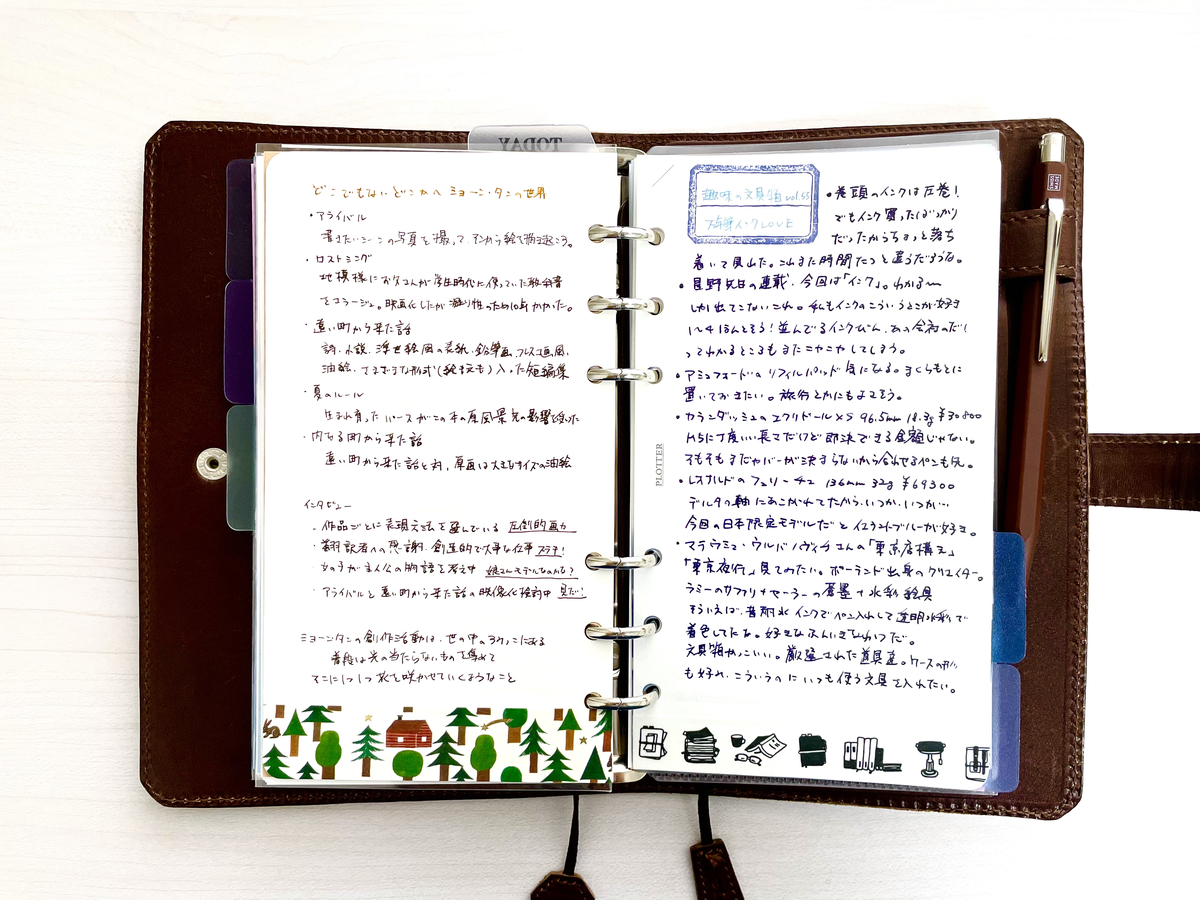 TODAY
どこでもないどこかへ ショーン・タンの世界
・アライバル
書きたいシーンの写真を撮って、アンから絵で描き起こう。
・ロストシング
地模様にお父さんが学生時代に使っていた教科書
をコラージュ。映画化したが凝り性のため10年かかった。
・遠い町から来た話
詩、小説、浮世絵風の表紙、鉛筆画、フレスコ画風、
油絵、さまざまな形式(絵まえも)入った短編集
・夏のルール
生まれ育ったパースがこの本の原風景 光の影響を
・内なる町から来た話
遠い町から来た話と対、原画は大きなサイズの油絵
インタビュー
・作品ごとに表現方法を選んでいる 圧倒的画力
・翻訳者への感謝、創造的で大事な仕事 ステキ!
・女の子が主人公の物語を考え中 娘さんモデルなのかな?
・アライバルと遠い町から来た話の映像化検討中 見たい!
ショーン・タンの創作活動は、世の中のすみっこにある
普段は光の当たらないものを集めて
そこに1つ1つ花を咲かせていくようなこと
趣味の文具箱 vol.55
万年筆インクLOVE
・巻頭のインクは圧巻!
でもインク買ったばっかり
だったからちょっと落ち
着いて見れた。これまた時間たつと違うだろうな。
・星野先日の連載、今回は「インク」。わかる〜
しか出てこないこれ。私もインクのこういうとこが好き
〜ほんとそう!並んでるインクびん、あの会初のだ(
ってわかるところもまたニヤニヤしてしまう。
・アシュフォードのリフィルパッド 気になる。まくらもとに
置いておきたい。旅行とかにもよさそう。
・カランダッシュのエクリドールXS 96.5mm 18.3g ¥30800
M5に丁度いい長さだけど即決できる金額じゃない。
そもそもまだカバーが決まらないから合わせるペンも欠。
・レオナルドのフェリーチェ 136mm 32g ¥69300
デルタの軸にあこがれてたから、いつか、いつか…
今回の日本限定モデルだとイエラントブルーが好き。
・マテウシュ・ウルバノヴィチさんの「東京店構え」
「東京夜行」見てみたい。ポーランド出身のクリエイター。
ラミーのサファリ+セーラーの蒼墨+水彩絵具
そういえば、昔耐水インクでペン入れして透明水彩で
着色してたな。好きなふんいきなわけだ。
文具箱かっこいい。厳選された道具達。ケースのカバー
も好み。こういうのにいつも使う文具を入れたい。
PLOTTER